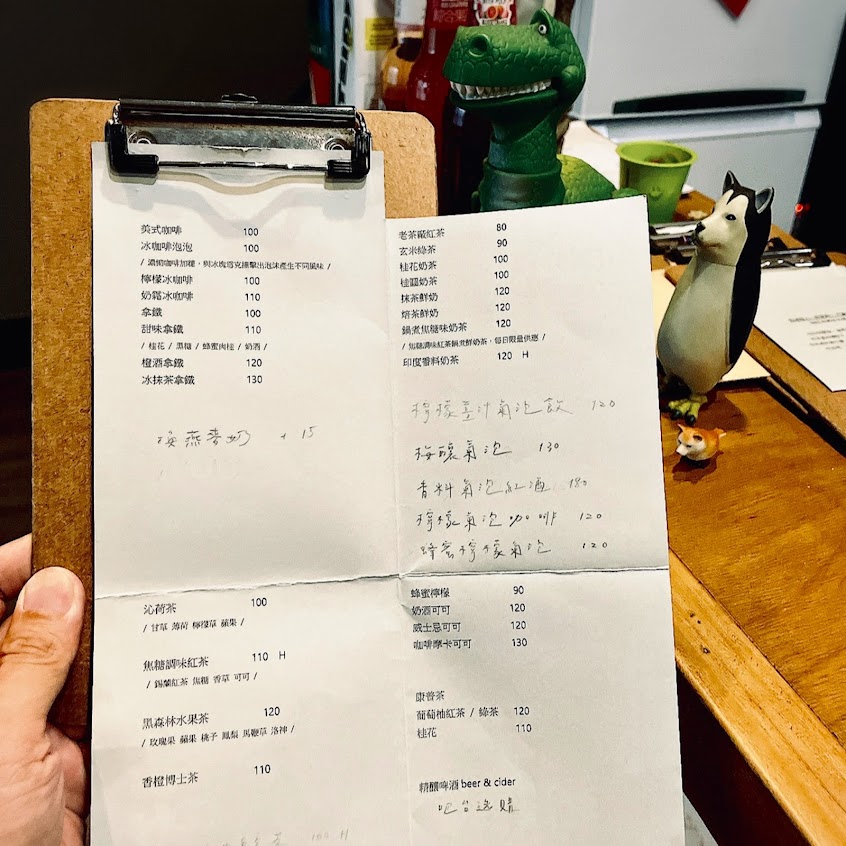 美式咖啡 100
冰咖啡泡泡 100
/ 濃縮咖啡加糖，與冰塊雪克撞擊出泡沫產生不同風味 /
檸檬冰咖啡 100
奶霜冰咖啡 110
拿鐵 100
甜味拿鐵 110
/ 桂花 / 黑糖 / 蜂蜜肉桂 / 奶酒 /
橙酒拿鐵 120
冰抹茶拿鐵 130
換燕麥奶 +15
老茶廠紅茶 80
玄米綠茶 90
桂花奶茶 100
桂圓奶茶 100
抹茶鮮奶 120
焙茶鮮奶 120
鍋煮焦糖味奶茶 120
/ 焦糖調味紅茶鍋煮鮮奶茶，每日限量供應 /
印度香料奶茶 120 H
檸檬薑汁氣泡飲 120
梅釀氣泡 130
香料氣泡紅酒 180
檸檬氣泡咖啡 120
蜂蜜檸檬氣泡 120
沁荷茶 100
/ 甘草 薄荷 檸檬草 蘋果 /
焦糖調味紅茶 110 H
/ 錫蘭紅茶 焦糖 香草 可可 /
黑森林水果茶 120
/ 玫瑰果 蘋果 桃子 鳳梨 馬鞭草 洛神 /
香橙博士茶 110
100 H
蜂蜜檸檬 90
奶酒可可 120
威士忌可可 120
咖啡摩卡可可 130
康普茶
葡萄柚紅茶 / 綠茶 120
桂花 110
精釀啤酒 beer & cider
吧台選購